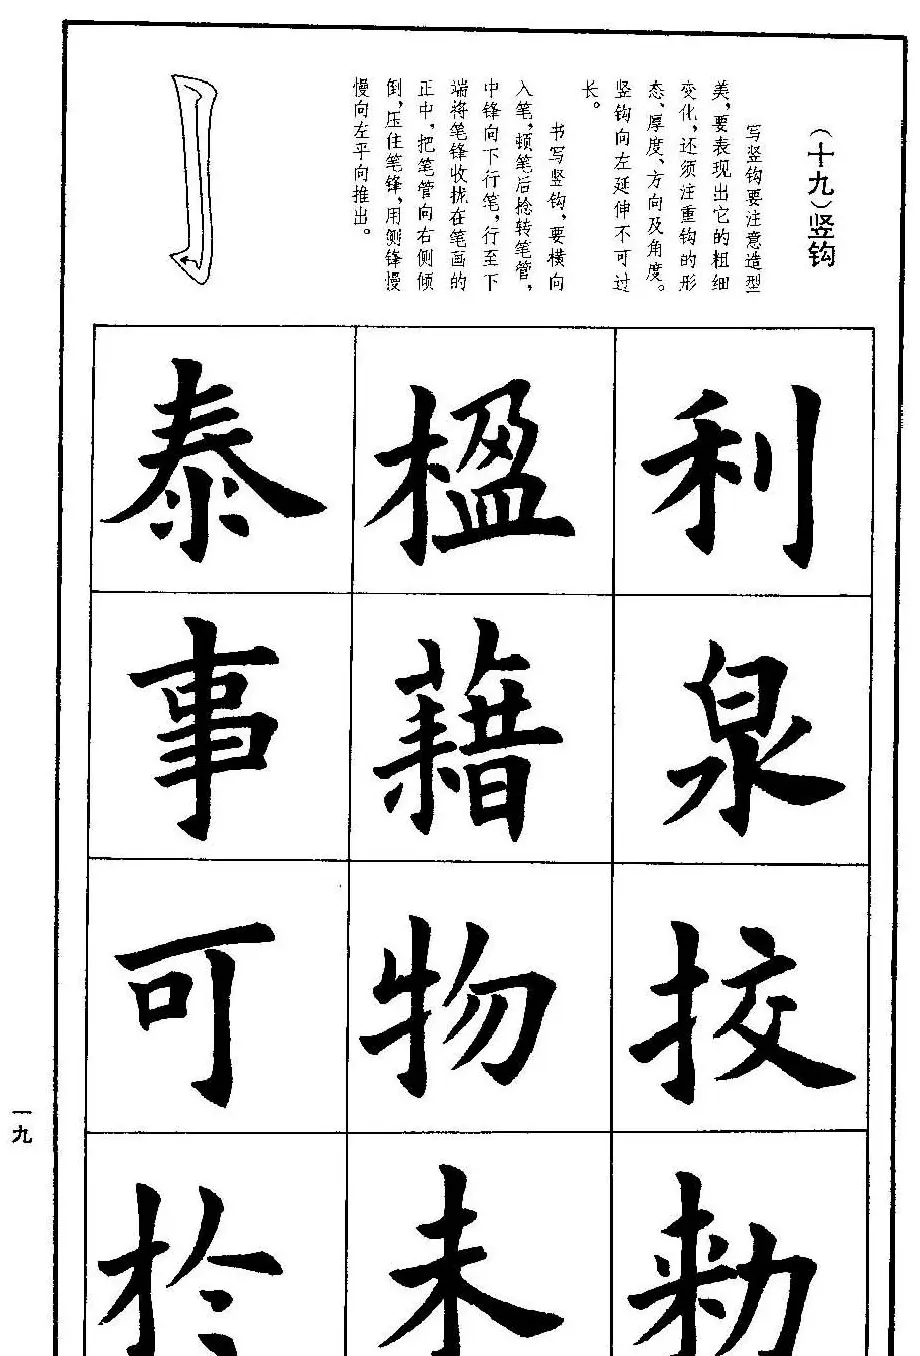 (十九)竖钩
写竖钩要注意造型
美,要表现出它的粗细
变化,还须注重钩的形
态、厚度、方向及角度。
竖钩向左延伸不可过
长。
书写竖钩,要横向
入笔,顿笔后捻转笔管,
中锋向下行笔,行至下
端将笔锋收拢在笔画的
正中,把笔管向右侧倾
倒,压住笔锋,用侧锋慢
慢向左平向推出。
利
泉
挍
勑
楹
藉
物
未
泰
事
可
於
一九